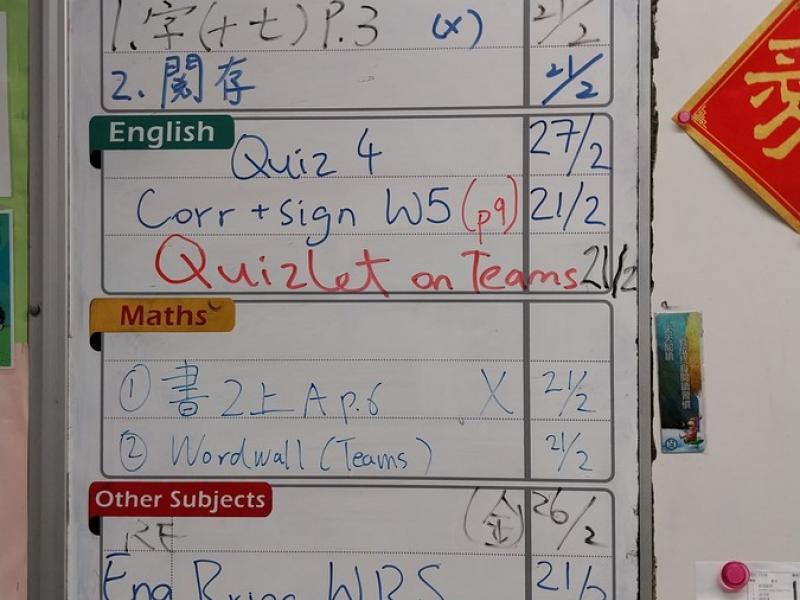 1. 字(十七) P.3 (x) 21/2
2. 閱存 21/2
English
Quiz 4 27/2
Corr + sign W5 (p9) 21/2
Quizlet on Teams 21/2
Maths
① 書2上A p.6 X 21/2
② Wordwall (Teams) 21/2
Other Subjects
RE (金) 26/2
Eng Bring WBS 21/2